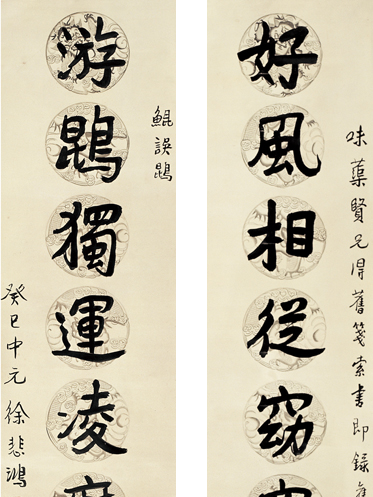 味蕖賢兄得舊箋索書即錄
好風相從窈
游鵾獨運凌
鯤誤鵾
癸巳中元徐悲鴻